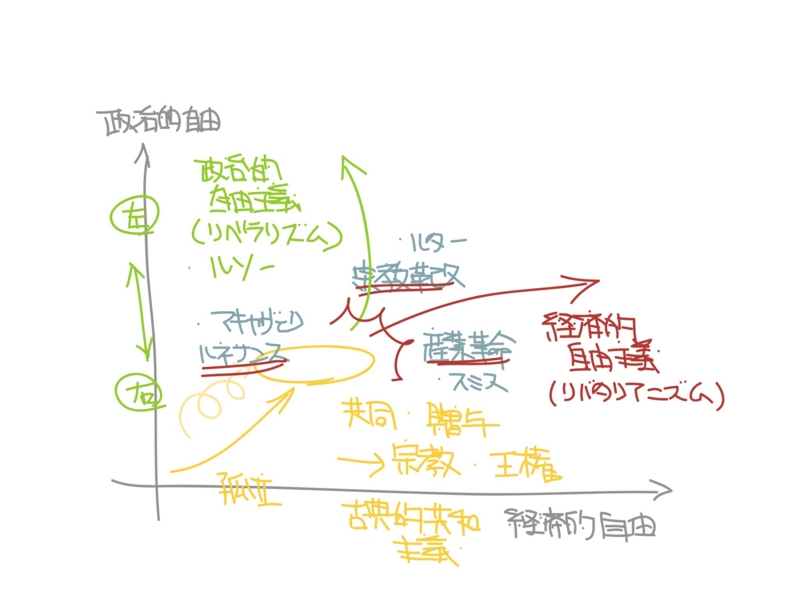 政治的自由
左
右
政治的
自由主義
(リベラリズム)
・ルソー
・ルター
宗教革改
・マキャヴェリ
ルネサンス
産業革命
スミス
経済的
自由主義
(リバタリアニズム)
共同・贈与
→宗教・王権
孤立
古典的共和
主義
経済的自由